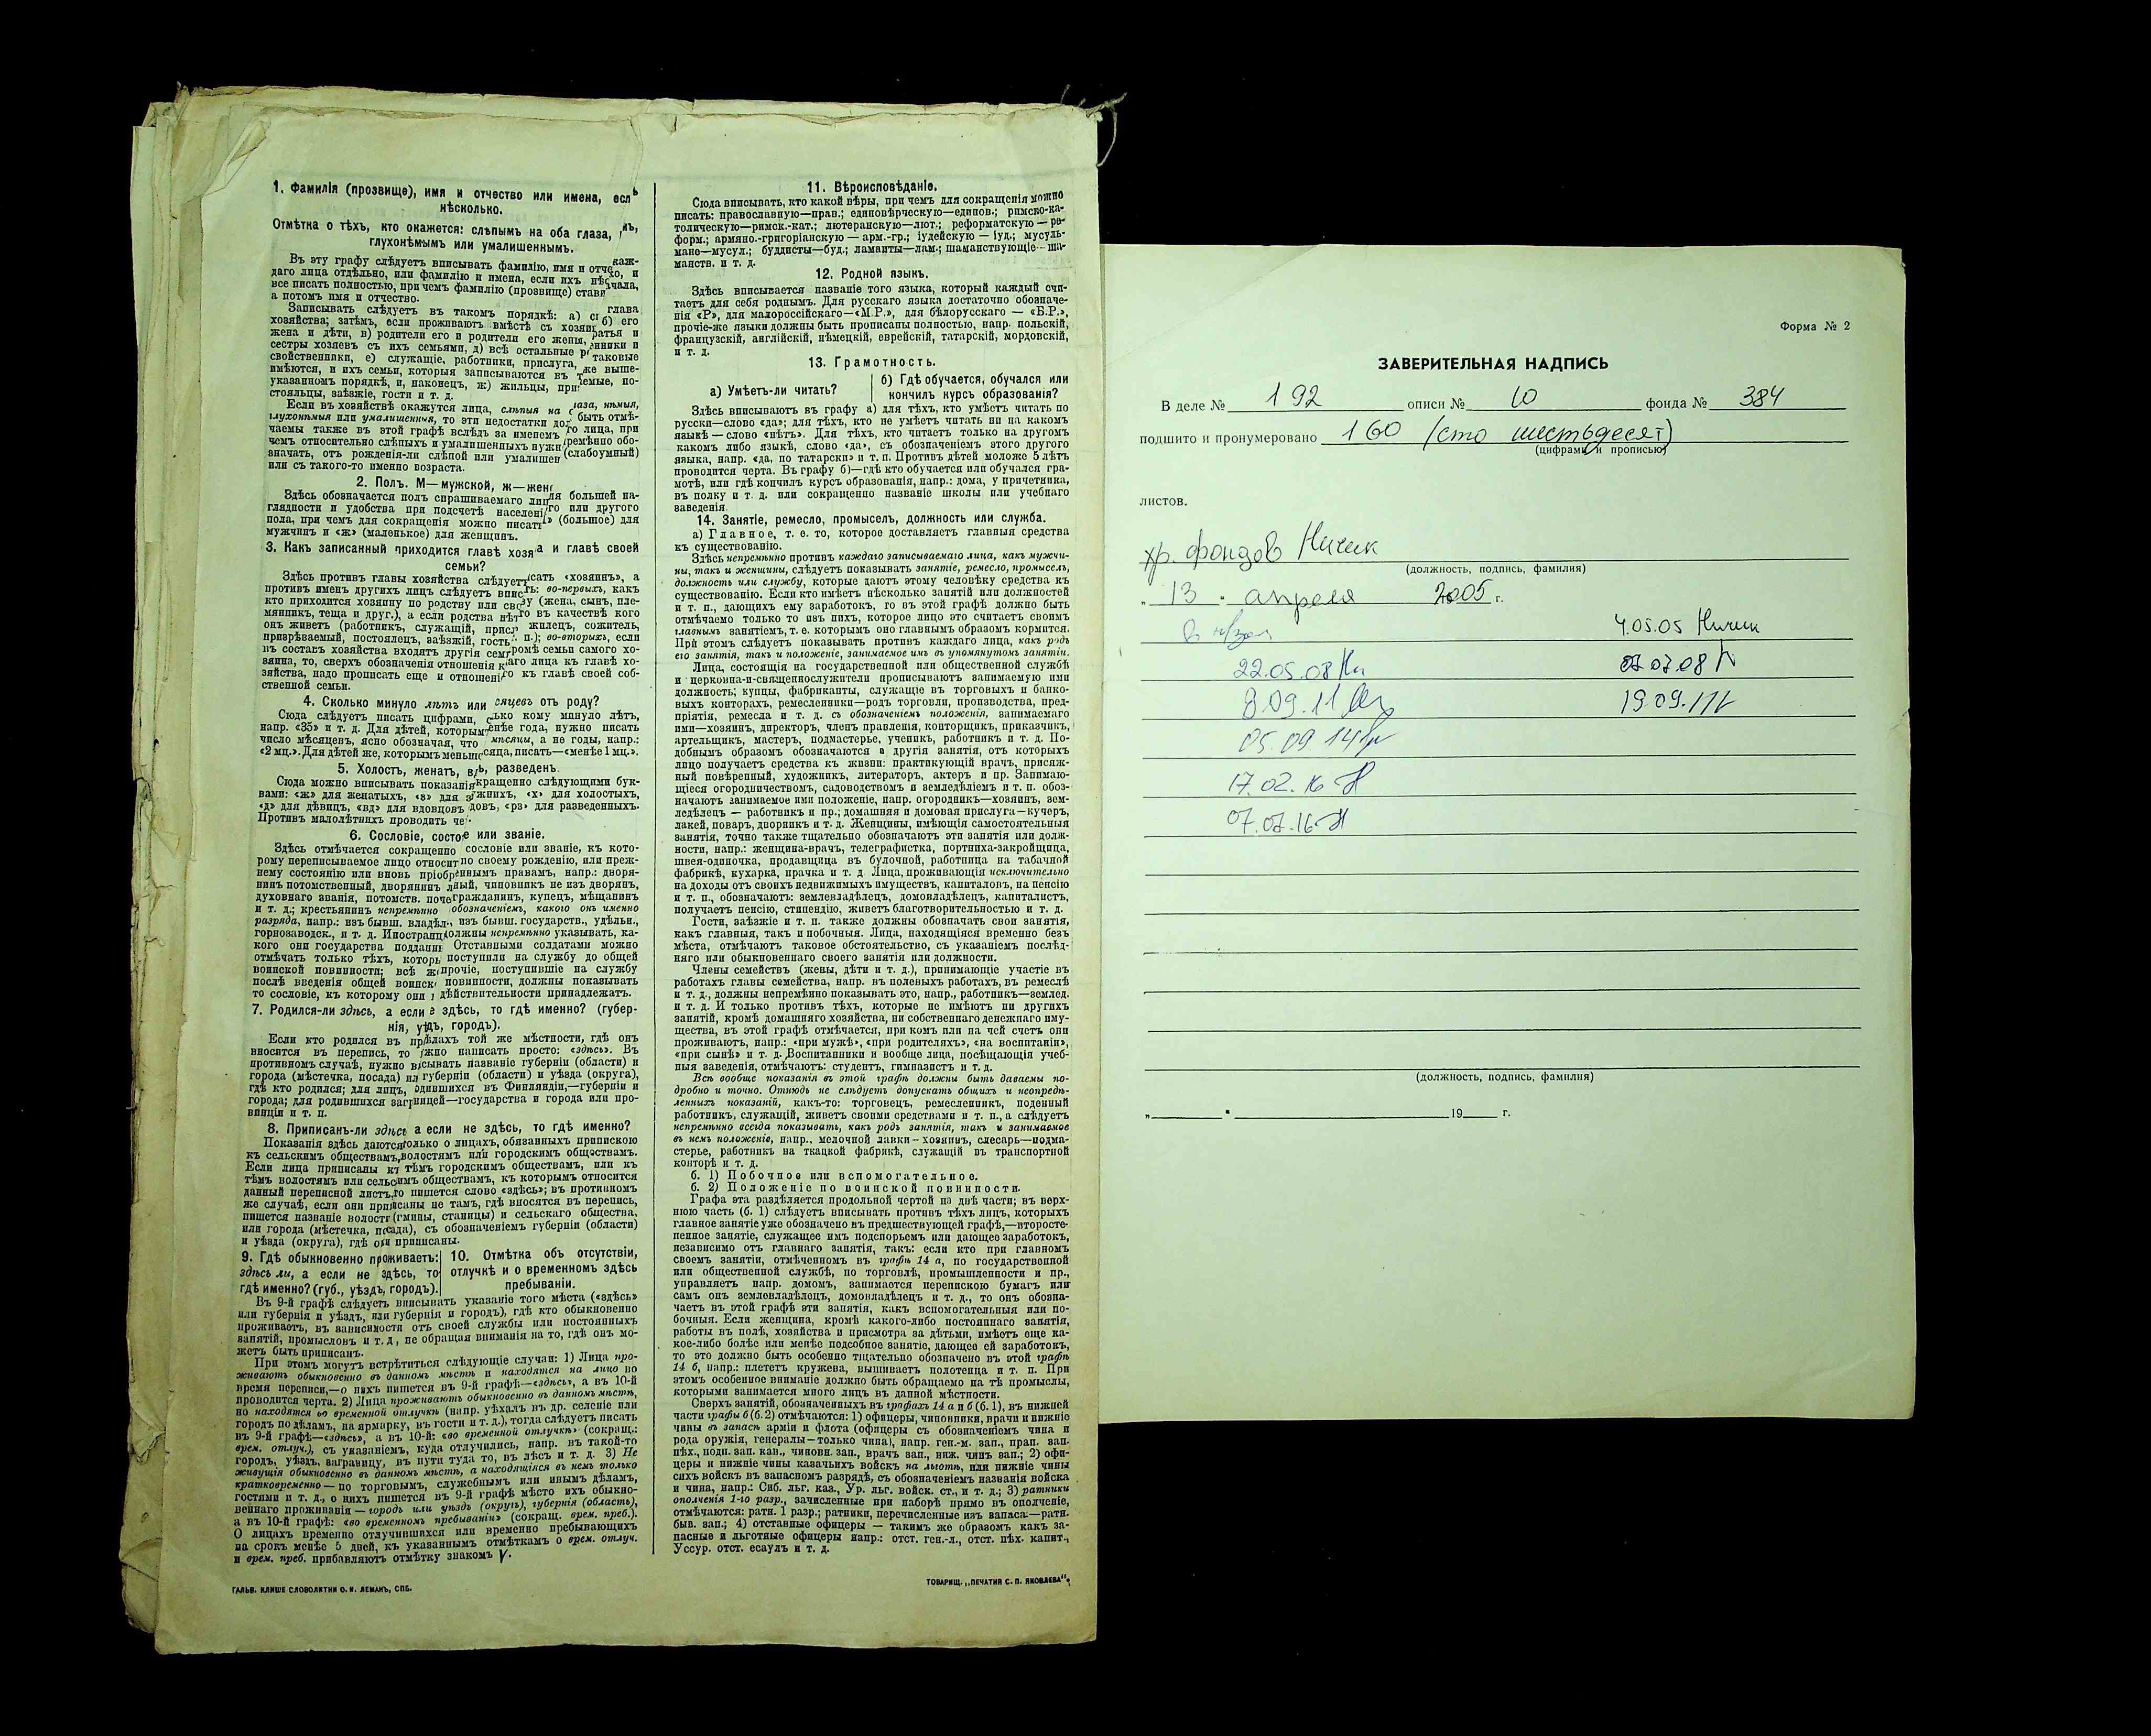 1. Фамилія (прозвище), имя и отчество или имена, есл ь
нѣсколько.
Отмѣтка о тѣхъ, кто окажется: слѣпымъ на оба глаза,
глухонѣмымъ или умалишеннымъ.
Въ эту графу слѣдуетъ вписывать фамилію, имя и отче каж-
даго лица отдѣльно, или фамилію и имена, если ихъ нѣс о, и
все писать полностью, при чемъ фамилію (прозвище) стави чала,
а потомъ имя и отчество.
Записывать слѣдуетъ въ такомъ порядкѣ: а) с глава
хозяйства; затѣмъ, если проживаютъ вмѣстѣ съ хозяи б) его
жена и дѣти, в) родители его и родители его жены, ратья и
сестры хозяевъ съ ихъ семьями, д) всѣ остальные р енники и
свойственники, е) служащіе, работники, прислуга, таковые
имѣются, и ихъ семьи, которыя записываются въ т же выше-
указанномъ порядкѣ, и, наконецъ, ж) жильцы, прі емые, по-
стояльцы, заѣзжіе, гости и т. д.
Если въ хозяйствѣ окажутся лица, слѣпыя на глаза, нѣмыя,
глухонѣмыя или умалишенныя, то эти недостатки до быть отмѣ-
чаемы также въ этой графѣ вслѣдъ за именемъ го лица, при
чемъ относительно слѣпыхъ и умалишенныхъ нужн ремѣнно обо-
значать, отъ рожденія-ли слѣпой или умалишен (слабоумный)
или съ такого-то именно возраста.
2. Полъ. М—мужской, ж—жен
Здѣсь обозначается полъ спрашиваемаго лиц ля большей на-
глядности и удобства при подсчетѣ населені го или другого
пола, при чемъ для сокращенія можно писат » (большое) для
мужчинъ и «ж» (маленькое) для женщинъ.
3. Какъ записанный приходится главѣ хозя а и главѣ своей
семьи?
Здѣсь противъ главы хозяйства слѣдует исать «хозяинъ», а
противъ именъ другихъ лицъ слѣдуетъ впис ть: во-первыхъ, какъ
кто приходится хозяину по родству или сво у (жена, сынъ, пле-
мянникъ, теща и друг.), а если родства нѣт то въ качествѣ кого
онъ живетъ (работникъ, служащій, присл жилецъ, сожитель,
призрѣваемый, постоялецъ, заѣзжій, гость п.); во-вторыхъ, если
въ составъ хозяйства входятъ другія сем ромѣ семьи самого хо-
зяина, то, сверхъ обозначенія отношенія к аго лица къ главѣ хо-
зяйства, надо прописать еще и отношені го къ главѣ своей соб-
ственной семьи.
4. Сколько минуло лѣтъ или сяцевъ отъ роду?
Сюда слѣдуетъ писать цифрами, ько кому минуло лѣтъ,
напр. «35» и т. д. Для дѣтей, которым енѣе года, нужно писать
число мѣсяцевъ, ясно обозначая, что мѣсяцы, а не годы, напр.:
«2 мц.». Для дѣтей же, которымъ меньш сяца, писать—«менѣе 1 мц.».
5. Холостъ, женатъ, в ъ, разведенъ.
Сюда можно вписывать показанія кращенно слѣдующими бук-
вами: «ж» для женатыхъ, «з» для з жнихъ, «х» для холостыхъ,
«д» для дѣвицъ, «вд» для вдовцовъ довъ, «рз» для разведенныхъ.
Противъ малолѣтнихъ проводить че
6. Сословіе, состоя е или званіе.
Здѣсь отмѣчается сокращенно сословіе или званіе, къ кото-
рому переписываемое лицо относит по своему рожденію, или преж-
нему состоянію или вновь пріобр еннымъ правамъ, напр.: дворя-
нинъ потомственный, дворянинъ л ный, чиновникъ не изъ дворянъ,
духовнаго званія, потомств. поче гражданинъ, купецъ, мѣщанинъ
и т. д.; крестьянинъ непремѣнно обозначеніемъ, какого онъ именно
разряда, напр.: изъ бывш. владѣл., изъ бывш. государств., удѣльн.,
горнозаводск., и т. д. Иностранц олжны непремѣнно указывать, ка-
кого они государства подданн Отставными солдатами можно
отмѣчать только тѣхъ, которы поступили на службу до общей
воинской повинности; всѣ ж прочіе, поступившіе на службу
послѣ введенія общей воинск повинности, должны показывать
то сословіе, къ которому они дѣйствительности принадлежатъ.
7. Родился-ли здѣсь, а если е здѣсь, то гдѣ именно? (губер-
нія, уѣздъ, городъ).
Если кто родился въ предѣлахъ той же мѣстности, гдѣ онъ
вносится въ перепись, то ужно написать просто: «здѣсь». Въ
противномъ случаѣ, нужно вписывать названіе губерніи (области) и
города (мѣстечка, посада) ил губерніи (области) и уѣзда (округа),
гдѣ кто родился; для лицъ, родившихся въ Финляндіи,—губерніи и
города; для родившихся заграницей—государства и города или про-
винціи и т. п.
8. Приписанъ-ли здѣсь а если не здѣсь, то гдѣ именно?
Показанія здѣсь даются только о лицахъ, обязанныхъ припискою
къ сельскимъ обществамъ, волостямъ или городскимъ обществамъ.
Если лица приписаны къ тѣмъ городскимъ обществамъ, или къ
тѣмъ волостямъ или сельскимъ обществамъ, къ которымъ относится
данный переписной листъ, то пишется слово «здѣсь»; въ противномъ
же случаѣ, если они приписаны не тамъ, гдѣ вносятся въ перепись,
пишется названіе волости (гмины, станицы) и сельскаго общества,
или города (мѣстечка, посада), съ обозначеніемъ губерніи (области)
и уѣзда (округа), гдѣ они приписаны.
9. Гдѣ обыкновенно проживаетъ: 10. Отмѣтка объ отсутствіи,
здѣсь ли, а если не здѣсь, то отлучкѣ и о временномъ здѣсь
гдѣ именно? (губ., уѣздъ, городъ). пребываніи.
Въ 9-й графѣ слѣдуетъ вписывать указаніе того мѣста («здѣсь»
или губернія и уѣздъ, или губернія и городъ), гдѣ кто обыкновенно
проживаетъ, въ зависимости отъ своей службы или постоянныхъ
занятій, промысловъ и т. д., не обращая вниманія на то, гдѣ онъ мо-
жетъ быть приписанъ.
При этомъ могутъ встрѣтиться слѣдующіе случаи: 1) Лица про-
живаютъ обыкновенно въ данномъ мѣстѣ и находятся на лицо во
время переписи,—о нихъ пишется въ 9-й графѣ—«здѣсь», а въ 10-й
проводится черта. 2) Лица проживаютъ обыкновенно въ данномъ мѣстѣ,
но находятся во временной отлучкѣ (напр. уѣхалъ въ др. селеніе или
городъ по дѣламъ, на ярмарку, въ гости и т. д.), тогда слѣдуетъ писать
въ 9-й графѣ—«здѣсь», а въ 10-й: «во временной отлучкѣ» (сокращ.:
врем. отлуч.), съ указаніемъ, куда отлучились, напр. въ такой-то
городъ, уѣздъ, заграницу, въ пути туда то, въ лѣсъ и т. д. 3) Не
живущія обыкновенно въ данномъ мѣстѣ, а находящіяся въ немъ только
кратковременно—по торговымъ, служебнымъ или инымъ дѣламъ,
гостями и т. д., о нихъ пишется въ 9-й графѣ мѣсто ихъ обыкно-
веннаго проживанія—городъ или уѣздъ (округъ), губернія (область),
а въ 10-й графѣ: «во временномъ пребываніи» (сокращ. врем. преб.).
О лицахъ временно отлучившихся или временно пребывающихъ
на срокъ менѣе 5 дней, къ указаннымъ отмѣткамъ о врем. отлуч.
и врем. преб. прибавляютъ отмѣтку знакомъ V.
ГАЛЬВ. КЛИШЕ СЛОВОЛИТНИ О. И. ЛЕМАНЪ, СПБ.
11. Вѣроисповѣданіе.
Сюда вписывать, кто какой вѣры, при чемъ для сокращенія можно
писать: православную—прав.; единовѣрческую—единов.; римско-ка-
толическую—римок.-кат.; лютеранскую—лют.; реформатскую—ре-
форм.; армяно.-григоріанскую—арм.-гр.; іудейскую—іуд.; мусуль-
мане—мусул.; буддисты—буд.; ламаиты—лам.; шаманствующіе—ша-
манств. и т. д.
12. Родной языкъ.
Здѣсь вписывается названіе того языка, который каждый счи-
таетъ для себя роднымъ. Для русскаго языка достаточно обозначе-
нія «Р», для малороссійскаго—«М.Р.», для бѣлорусскаго—«Б.Р.»,
прочіе-же языки должны быть прописаны полностью, напр. польскій,
французскій, англійскій, нѣмецкій, еврейскій, татарскій, мордовскій,
и т. д.
13. Грамотность.
а) Умѣетъ-ли читать? б) Гдѣ обучается, обучался или
кончилъ курсъ образованія?
Здѣсь вписываютъ въ графу а) для тѣхъ, кто умѣетъ читать по
русски—слово «да»; для тѣхъ, кто не умѣетъ читать ни на какомъ
языкѣ—слово «нѣтъ». Для тѣхъ, кто читаетъ только на другомъ
какомъ либо языкѣ, слово «да», съ обозначеніемъ этого другого
языка, напр. «да, по татарски» и т. п. Противъ дѣтей моложе 5 лѣтъ
проводится черта. Въ графу б)—гдѣ кто обучается или обучался гра-
мотѣ, или гдѣ кончилъ курсъ образованія, напр.: дома, у причетника,
въ полку и т. д. или сокращенно названіе школы или учебнаго
заведенія.
14. Занятіе, ремесло, промыселъ, должность или служба.
а) Главное, т. е. то, которое доставляетъ главныя средства
къ существованію.
Здѣсь непремѣнно противъ каждаго записываемаго лица, какъ мужчи-
ны, такъ и женщины, слѣдуетъ показывать занятіе, ремесло, промыселъ,
должность или службу, которые даютъ этому человѣку средства къ
существованію. Если кто имѣетъ нѣсколько занятій или должностей
и т. п., дающихъ ему заработокъ, то въ этой графѣ должно быть
отмѣчаемо только то изъ нихъ, которое лицо это считаетъ своимъ
главнымъ занятіемъ, т. е. которымъ оно главнымъ образомъ кормится.
При этомъ слѣдуетъ показывать противъ каждаго лица, какъ родъ
его занятія, такъ и положеніе, занимаемое имъ въ упомянутомъ занятіи.
Лица, состоящія на государственной или общественной службѣ
и церковно-и-священнослужители прописываютъ занимаемую ими
должность; купцы, фабриканты, служащіе въ торговыхъ и банко-
выхъ конторахъ, ремесленники—родъ торговли, производства, пред-
пріятія, ремесла и т. д. съ обозначеніемъ положенія, занимаемаго
ими—хозяинъ, директоръ, членъ правленія, конторщикъ, приказчикъ,
артельщикъ, мастеръ, подмастерье, ученикъ, работникъ и т. д. По-
добнымъ образомъ обозначаются и другія занятія, отъ которыхъ
лицо получаетъ средства къ жизни: практикующій врачъ, присяж-
ный повѣренный, художникъ, литераторъ, актеръ и пр. Занимаю-
щіеся огородничествомъ, садоводствомъ и земледѣліемъ и т. п. обоз-
начаютъ занимаемое ими положеніе, напр. огородникъ—хозяинъ, зем-
ледѣлецъ—работникъ и пр.; домашняя и домовая прислуга—кучеръ,
лакей, поваръ, дворникъ и т. д. Женщины, имѣющія самостоятельныя
занятія, точно также тщательно обозначаютъ эти занятія или долж-
ности, напр.: женщина-врачъ, телеграфистка, портниха-закройщица,
швея-одиночка, продавщица въ булочной, работница на табачной
фабрикѣ, кухарка, прачка и т. д. Лица, проживающія исключительно
на доходы отъ своихъ недвижимыхъ имуществъ, капиталовъ, на пенсію
и т. п., обозначаютъ: землевладѣлецъ, домовладѣлецъ, капиталистъ,
получаетъ пенсію, стипендію, живетъ благотворительностью и т. д.
Гости, заѣзжіе и т. п. также должны обозначать свои занятія,
какъ главныя, такъ и побочныя. Лица, находящіяся временно безъ
мѣста, отмѣчаютъ таковое обстоятельство, съ указаніемъ послѣд-
няго или обыкновеннаго своего занятія или должности.
Члены семействъ (жены, дѣти и т. д.), принимающіе участіе въ
работахъ главы семейства, напр. въ полевыхъ работахъ, въ ремеслѣ
и т. д., должны непремѣнно показывать это, напр., работникъ—землед.
и т. д. И только противъ тѣхъ, которые не имѣютъ ни другихъ
занятій, кромѣ домашняго хозяйства, ни собственнаго денежнаго иму-
щества, въ этой графѣ отмѣчается, при комъ или на чей счетъ они
проживаютъ, напр.: «при мужѣ», «при родителяхъ», «на воспитаніи»,
«при сынѣ» и т. д. Воспитанники и вообще лица, посѣщающія учеб-
ныя заведенія, отмѣчаютъ: студентъ, гимназистъ и т. д.
Всѣ вообще показанія въ этой графѣ должны быть даваемы по-
дробно и точно. Отнюдь не слѣдуетъ допускать общихъ и неопредѣ-
ленныхъ показаній, какъ-то: торговецъ, ремесленникъ, поденный
работникъ, служащій, живетъ своими средствами и т. п., а слѣдуетъ
непремѣнно всегда показывать, какъ родъ занятія, такъ и занимаемое
въ немъ положеніе, напр., мелочной лавки—хозяинъ, слесарь—подма-
стерье, работникъ на ткацкой фабрикѣ, служащій въ транспортной
конторѣ и т. д.
б. 1) Побочное или вспомогательное.
б. 2) Положеніе по воинской повинности.
Графа эта раздѣляется продольной чертой на двѣ части; въ верх-
нюю часть (б. 1) слѣдуетъ вписывать противъ тѣхъ лицъ, которыхъ
главное занятіе уже обозначено въ предшествующей графѣ,—второсте-
пенное занятіе, служащее имъ подспорьемъ или дающее заработокъ,
независимо отъ главнаго занятія, такъ: если кто при главномъ
своемъ занятіи, отмѣченномъ въ графѣ 14 а, по государственной
или общественной службѣ, по торговлѣ, промышленности и пр.,
управляетъ напр. домомъ, занимается перепискою бумагъ или
самъ онъ землевладѣлецъ, домовладѣлецъ и т. д., то онъ обозна-
чаетъ въ этой графѣ эти занятія, какъ вспомогательныя или по-
бочныя. Если женщина, кромѣ какого-либо постояннаго занятія,
работы въ полѣ, хозяйства и присмотра за дѣтьми, имѣетъ еще ка-
кое-либо болѣе или менѣе подсобное занятіе, дающее ей заработокъ,
то это должно быть особенно тщательно обозначено въ этой графѣ
14 б, напр.: плететъ кружева, вышиваетъ полотенца и т. п. При
этомъ особенное вниманіе должно быть обращаемо на тѣ промыслы,
которыми занимается много лицъ въ данной мѣстности.
Сверхъ занятій, обозначенныхъ въ графахъ 14 а и б (б. 1), въ нижней
части графы б (б. 2) отмѣчаются: 1) офицеры, чиновники, врачи и нижніе
чины въ запасѣ арміи и флота (офицеры съ обозначеніемъ чина и
рода оружія, генералы—только чина), напр. ген.-м. зап., прап. зап.
пѣх., подп. зап. кав., чиновн. зап., врачъ зап., ниж. чинъ зап.; 2) офи-
церы и нижніе чины казачьихъ войскъ на льготѣ, или нижніе чины
сихъ войскъ въ запасномъ разрядѣ, съ обозначеніемъ названія войска
и чина, напр.: Сиб. льг. каз., Ур. льг. войск. ст., и т. д.; 3) ратники
ополченія 1-го разр., зачисленные при наборѣ прямо въ ополченіе,
отмѣчаются: ратн. 1 разр.; ратники, перечисленные изъ запаса:—ратн.
быв. зап.; 4) отставные офицеры — такимъ же образомъ какъ за-
пасные и льготные офицеры напр.: отст. ген.-л., отст. пѣх. капит.,
Уссур. отст. есаулъ и т. д.
ТОВАРИЩ. „ПЕЧАТНЯ С. П. ЯКОВЛЕВА".
Форма № 2
ЗАВЕРИТЕЛЬНАЯ НАДПИСЬ
В деле № 192 описи № 10 фонда № 384
подшито и пронумеровано 160 (сто шестьдесят)
(цифрами и прописью)
листов.
хр. фондов Ничик
(должность, подпись, фамилия)
„ 13 " апреля 2005 г.
4.05.05 Ничик
22.05.08 07.07.08
8.09.11 19.09.11
05.09.14
17.02.16
07.07.16
(должность, подпись, фамилия)
„ " 19 г.